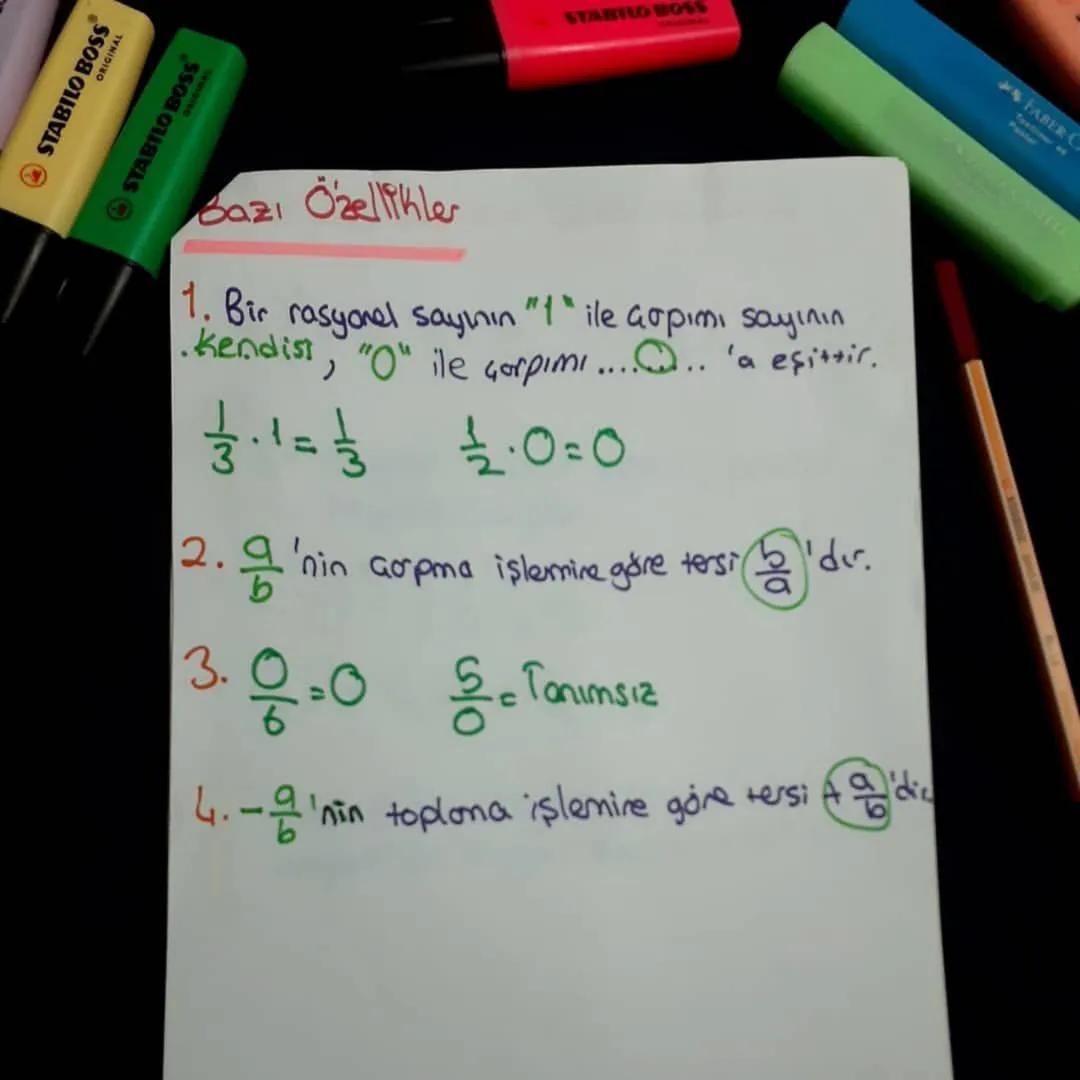 STABILO BOSS
ORIGINAL
STABILO BOSS
ORIGINAL
STABILO BOSS
ORIGINAL
FABER C
Textliner 46
Pastel
Bazı Özellikler
1. Bir rasyonel sayının "1" ile çarpımı sayının
.kendisi, "0" ile çarpımı ....0.. 'a eşittir.
1/3 . 1 = 1/3 1/2 . 0 = 0
2. a/b 'nin çarpma işlemine göre tersi b/a 'dır.
3. 0/6 = 0 5/0 = Tanımsız
4. - a/b 'nin toplama işlemine göre tersi + a/b 'dir